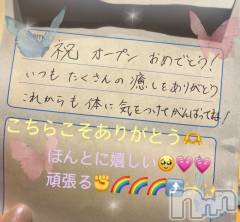 祝 オープン おめでとう!
いつも たくさんの 癒しをありがとう
これからも 体に 気をつけてがんばってね!
こちらこそありがとう🫶
ほんとに嬉しい🥹💗💗
頑張る✊🌈🌈🌈⤴️